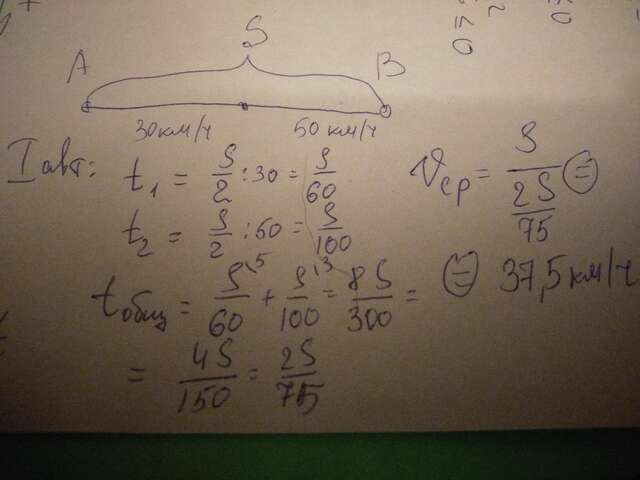 S
A B
30км/ч 50 км/ч
I авт: t₁ = S/2 : 30 = S/60
t₂ = S/2 : 50 = S/100
tобщ = S\5/60 + S\3/100 = 8S/300 =
= 4S/150 = 2S/75
Vср = S/(2S/75) =
= 37,5 км/ч